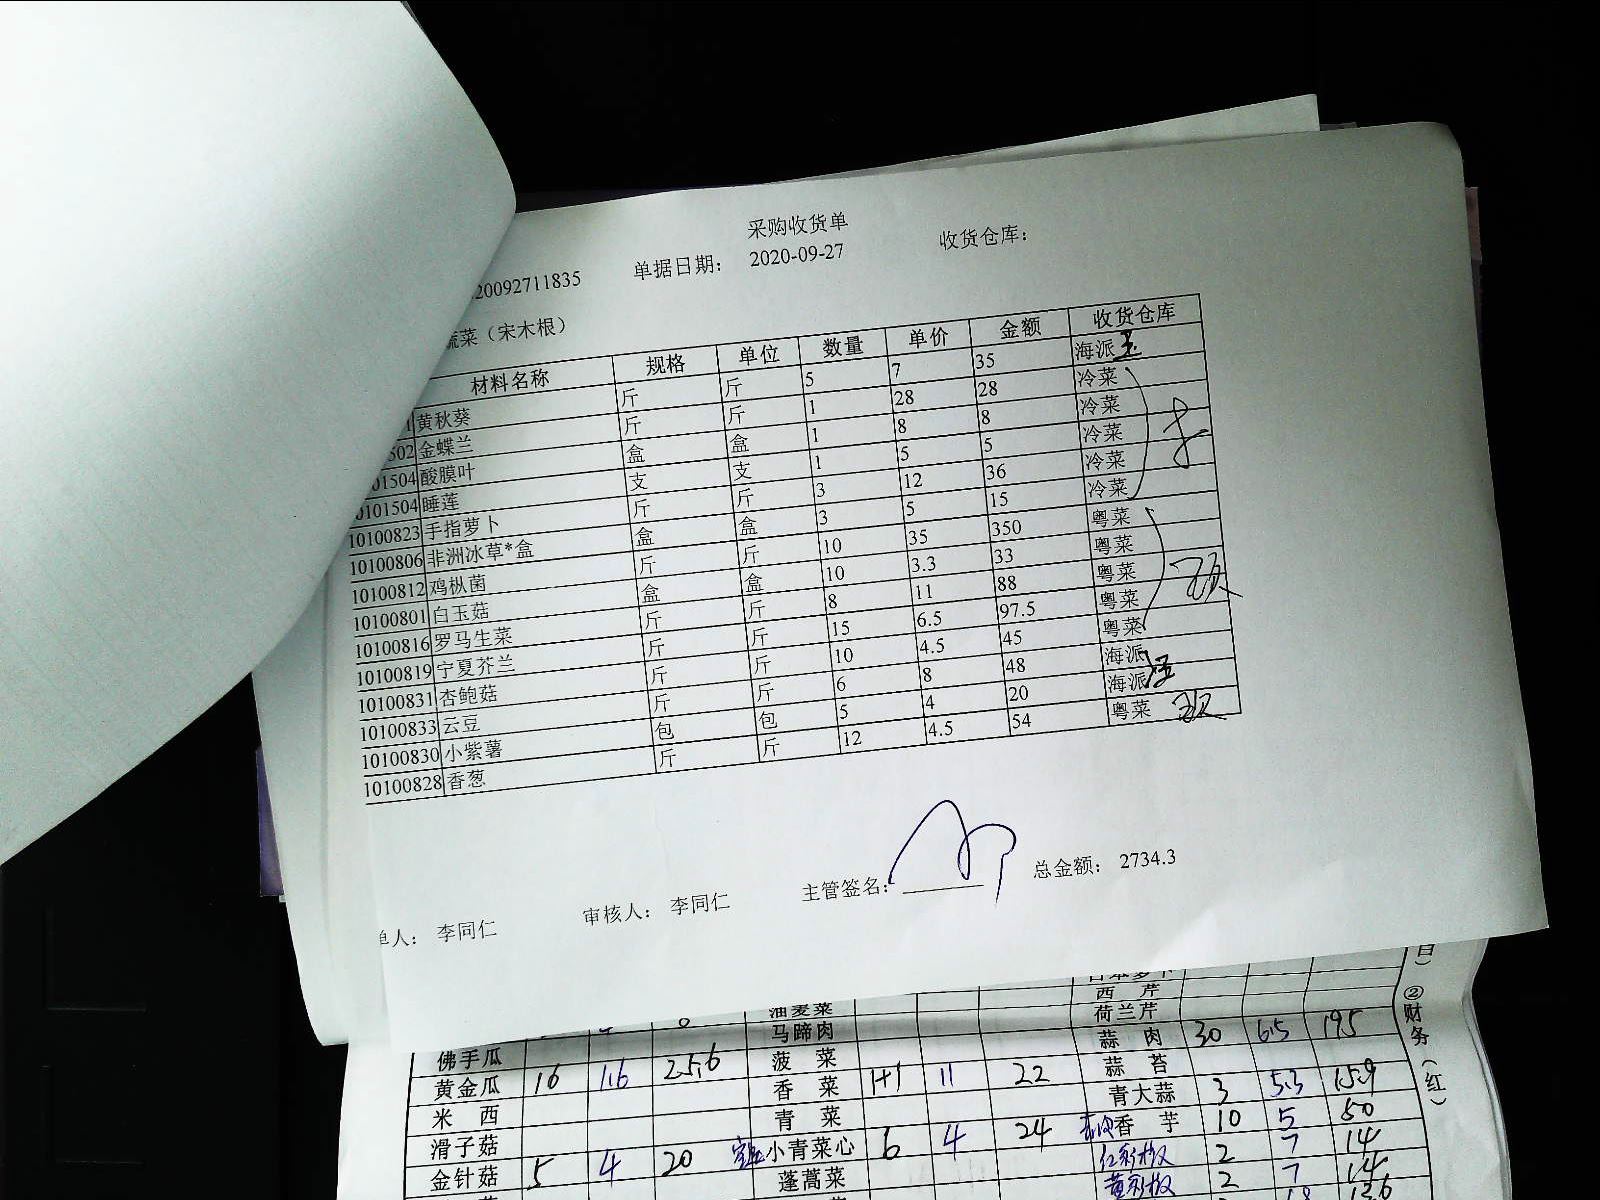 采购收货单
20092711835 单据日期： 2020-09-27 收货仓库：
蔬菜（宋木根）
材料名称 规格 单位 数量 单价 金额 收货仓库
1 黄秋葵 斤 斤 5 7 35 海派
502 金蝶兰 斤 斤 1 28 28 冷菜
01504 酸膜叶 盒 盒 1 8 8 冷菜
0101504 睡莲 支 支 1 5 5 冷菜
10100823 手指萝卜 斤 斤 3 12 36 冷菜
10100806 非洲冰草*盒 盒 盒 3 5 15 冷菜
10100812 鸡枞菌 斤 斤 10 35 350 粤菜
10100801 白玉菇 盒 盒 10 3.3 33 粤菜
10100816 罗马生菜 斤 斤 8 11 88 粤菜
10100819 宁夏芥兰 斤 斤 15 6.5 97.5 粤菜
10100831 杏鲍菇 斤 斤 10 4.5 45 粤菜
10100833 云豆 斤 斤 6 8 48 海派
10100830 小紫薯 包 包 5 4 20 海派
10100828 香葱 斤 斤 12 4.5 54 粤菜
总金额： 2734.3
单人： 李同仁 审核人： 李同仁 主管签名：
油麦菜 西 芹
马蹄肉 荷兰芹
佛手瓜 菠 菜 蒜 肉 30 6.5 195
黄金瓜 16 1.6 25.6 香 菜 1+1 11 22 蒜 苔
米 西 青 菜 青大蒜 3 5.3 15.9
滑子菇 小青菜心 6 4 24 香 芋 10 5 50
金针菇 5 4 20 蓬蒿菜 红彩椒 2 7 14
黄彩椒 2 7 14
②财务（红）